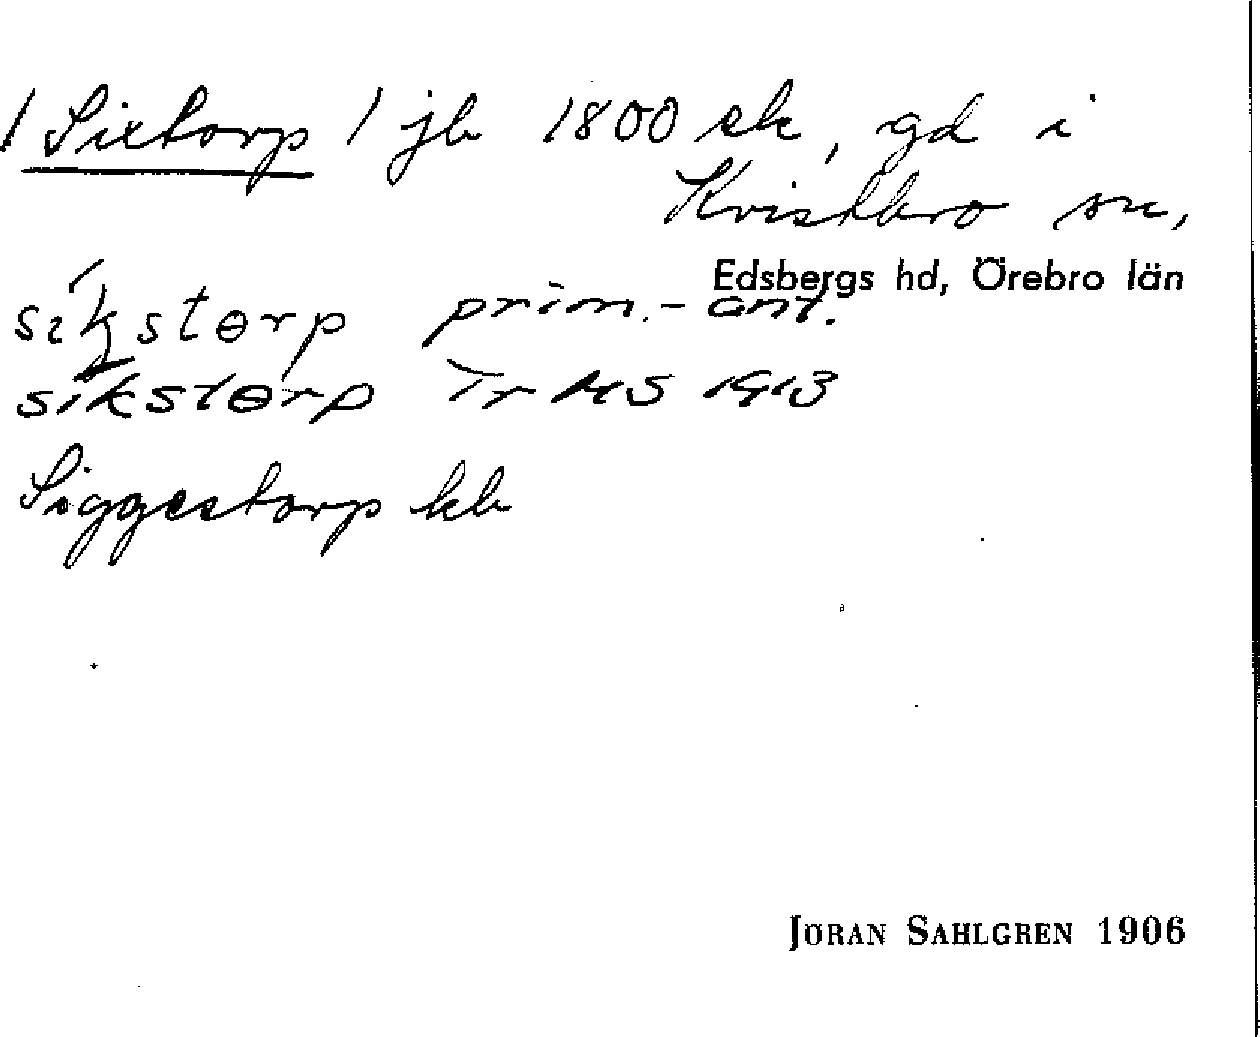 / Sixtorp / jb 1800 ek, gd i
Kvistbro sn,
Edsbergs hd, Örebro län
sikstɵrp prim.-ant.
sikstɵrp Tr MS 1913
Siggestorp kb
JÖRAN SAHLGREN 1906